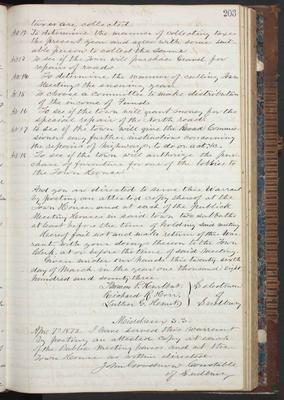 203
taxes are collected.
Art 12 To determine the manner of collecting taxes
the present year and agree with some suit
able person to collect the same
Art 13 To see if the Town will purchase Gravel for
repairs of roads
Art 14 To determine the manner of calling Town
Meetings the ensuing year.
Art 15 To choose a committee to make distribution
of the income of Funds
Art 16 To see if the town will grant money for the
special repairs of the north road
Art 17 To see if the town will give the Road Commis
sioners any further instructions concerning
the repairs of highways, to do or act &c.
Art 18 To see if the town will authorize the pur
chase of furniture for one of the lobbies to
the Town House
And you are directed to serve this Warrant
by posting an attested copy thereof at the
Town House and at each of the Publick
Meeting Houses in said town two sabbaths
at least before the time of holding said meeting
Hereof fail not and make return of this War
rant with your doings thereon to the Town
Clerk at or before the time of said meeting.
Given under our hands this twenty sixth
day of March in the year one thousand eight
hundred and seventy three.
Thomas P. Hurlbut
Selectmen
of
Sudbury
Middlesex S.S.
I have served this warrant
by posting an attested copy at each
of the Public Meeting houses and at the
Town House as within directed
Constable
of Sudbury